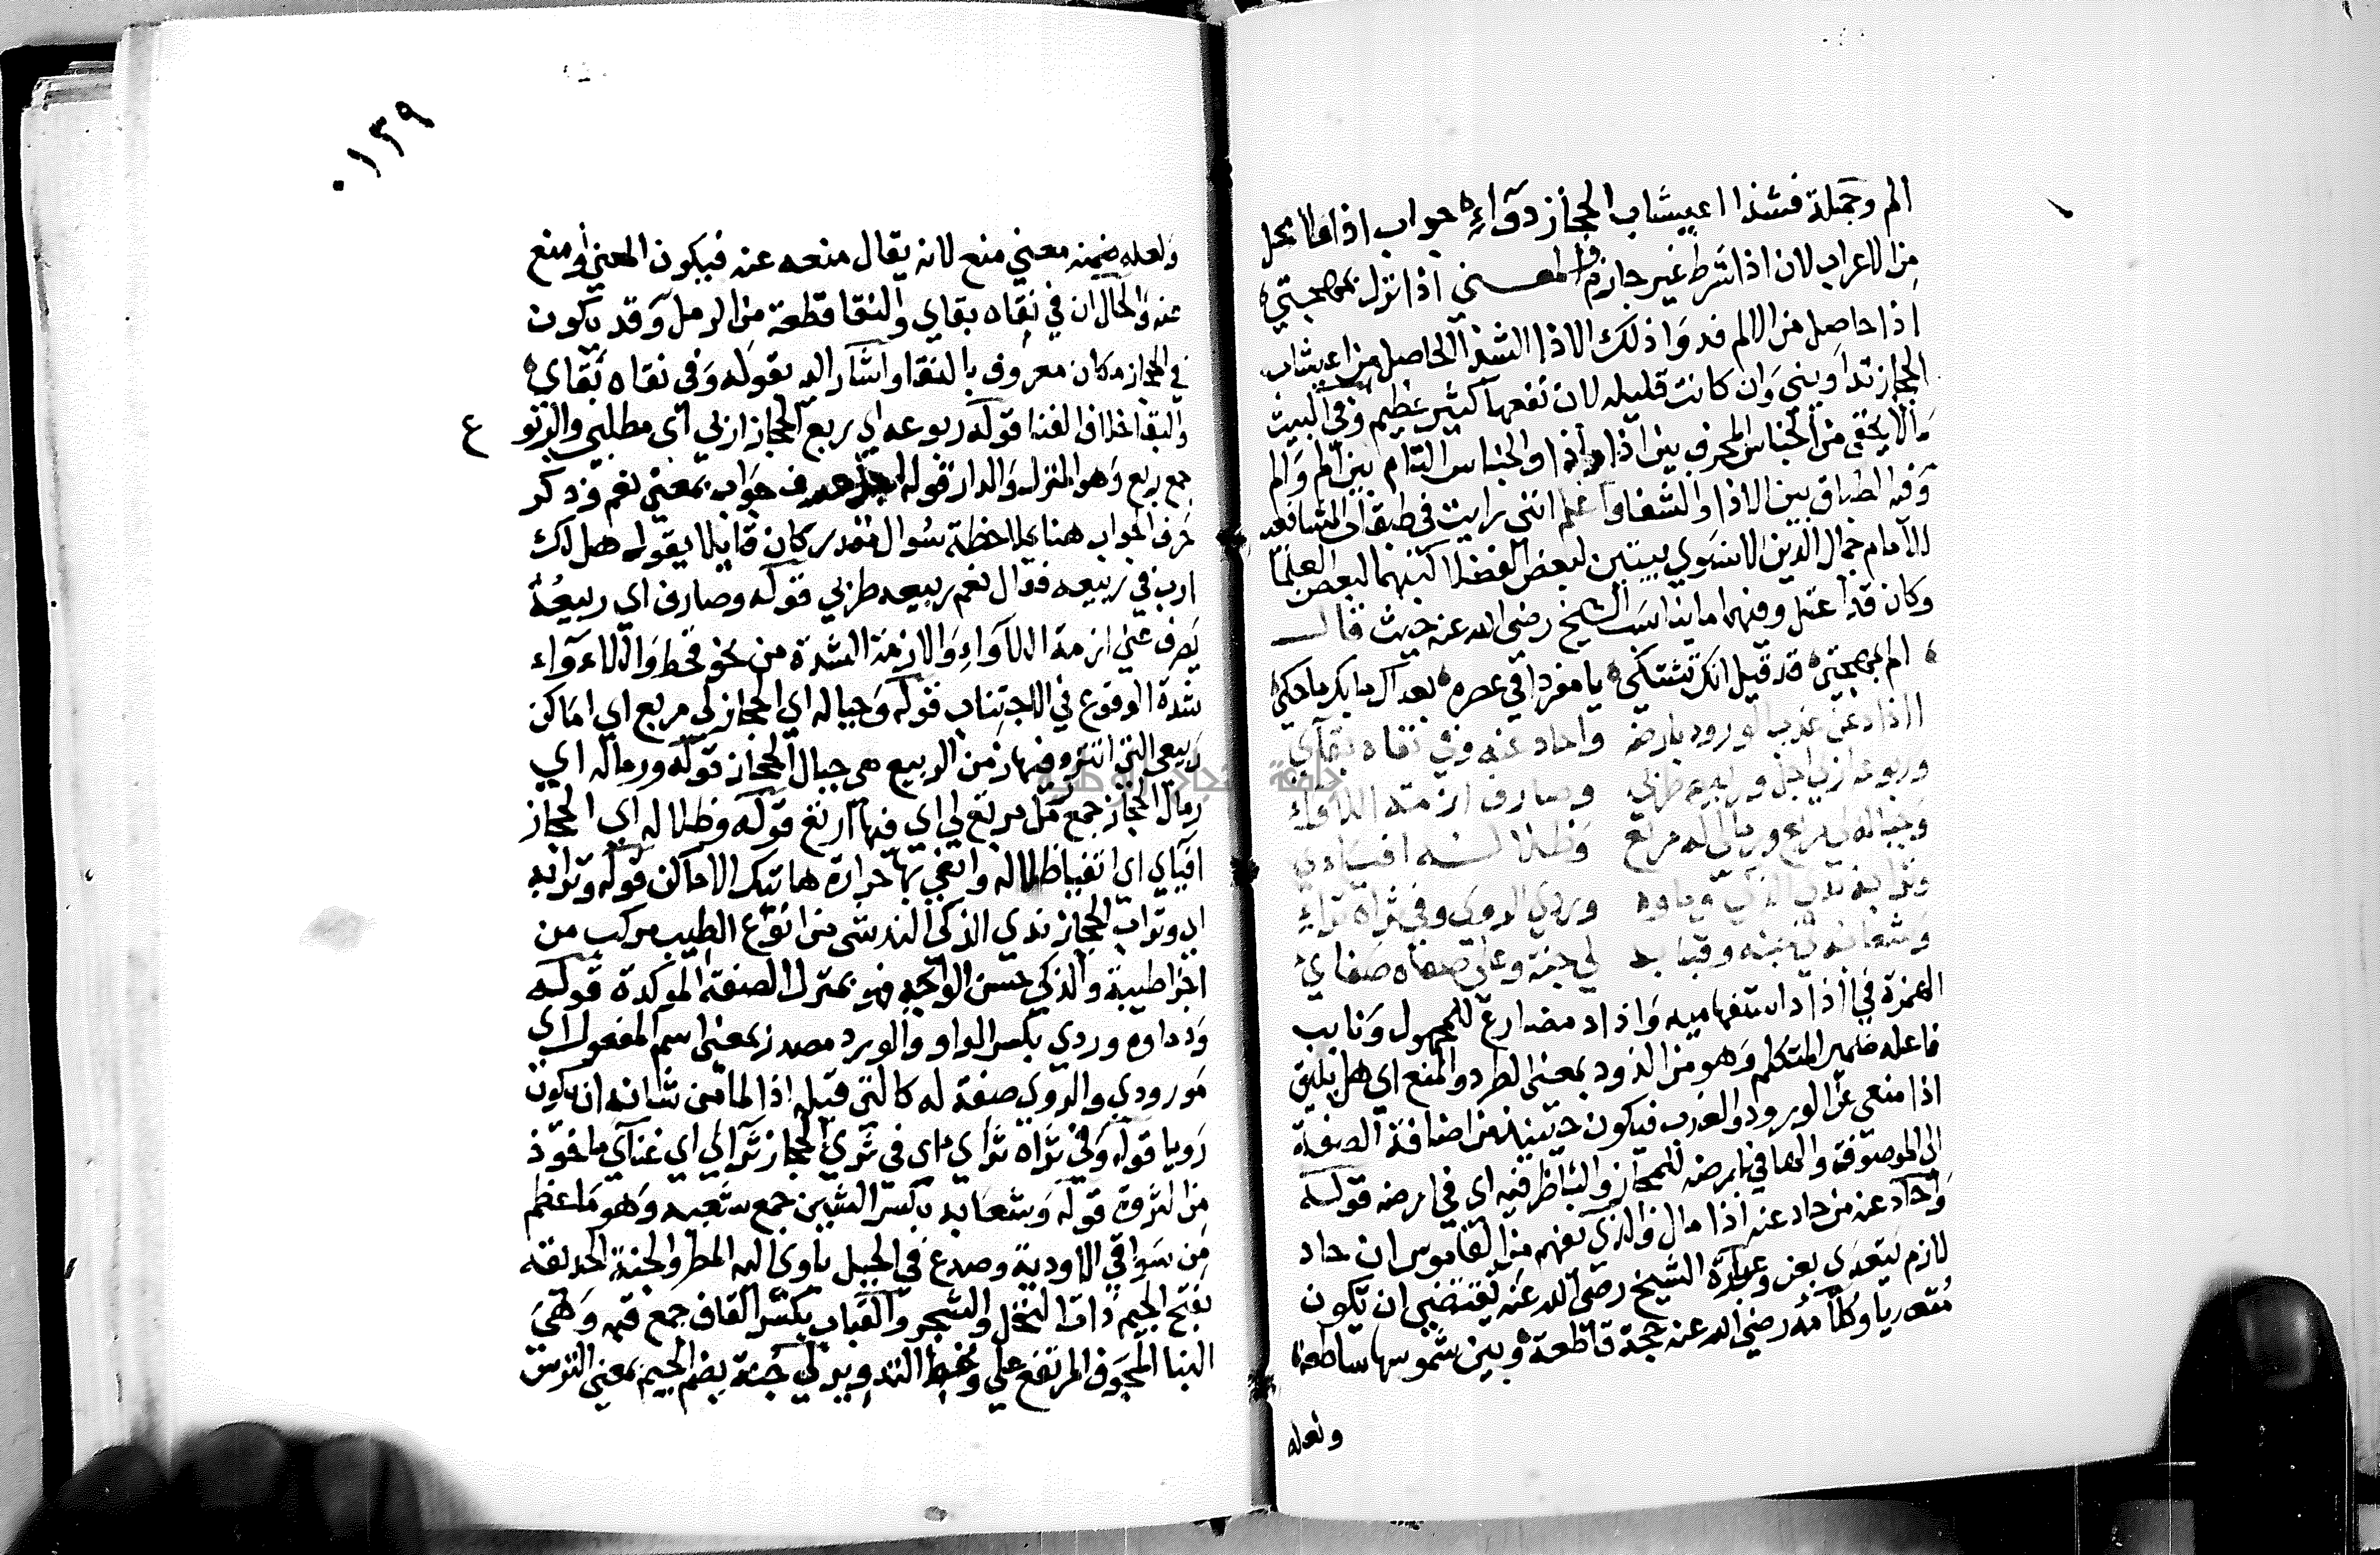 الم وجملة فشذا اعيشاب الحجاز دوآءِ جواب اذا فلا محل
من الاعراب لان اذا شرط غير جازم والمعنى اذا نزل بمهجتي
اذا حاصل من الالم فدوا ذلك الاذا الشذا الحاصل من اعيشاب
الحجاز تداويني وان كانت قليله لان نفعها كثير عظيم وفي البيت
ما لا يخفى من الجناس المحرف بين اذا واذا والجناس التام بين الم والم
وفيه الطباق بين الاذا والشفا واعلم انني رايت في طبقات الشافعيه
للامام جمال الدين الاسنوي بيتين لبعض الفضلا كتبهما لبعض العلما
وكان قد اعتل وفيهما ما يناسب الشيخ رضي الله عنه حيث قال
الم بمهجتي قد قيل انك تشتكي يا مفردا في عصره بعد ال بكر ما حكي
ااذاد عن عذب الورود بارضه واحاد عنه وفي نقاه بقآي
وربوعه اربي اجل وربيعه طربي وصارف ازمة اللاواء
وجباله لي مربع ورماله مرتع وظلاله افيآي
وترابه ندي الذكي وماوه وردي الروي وفي ثراه ثراء
وشعابه لي جنة وقبابه لي جنة وعلى صفاه صفاي
الهمزة في ااذاد استفهاميه واذاد مضارع للمجهول ونايب
فاعله ضمير المتكلم وهو من الذود بمعنى الطرد والمنع اي هل يليق
اذا منعي عن الورود والعذب فيكون حينيذ من اضافة الصفة
الى الموصوف والها في بارضه للحجاز والبا ظرفيه اي في ارضه قوله
واحاد عنه من حاد عنه اذا مال والذي يفهم من القاموس ان حاد
لازم يتعدى بعن وعبارة الشيخ رضي الله عنه تقتضي ان تكون
متعديا وكلامه رضي الله عنه حجة قاطعة وبين شموسها ساطعة
ولعله
١٣٩
ولعله ضمنه معنى منع لانه يقال منعه عنه فيكون المعنى أومنع
عنه والحال ان في نقاه بقاي والنقا قطعة من الرمل وقد يكون
في الحجاز مكان معروف بالنقا واشار اليه بقوله وفي نقاه بقاي
والبقا خلاف الفنا قوله ربوعه اي ربع الحجاز اربي اي مطلبي والربوع
جمع ربع وهو المنزل والدار قوله اجل حرف جواب بمعنى نعم وذكر
حرف الجواب هنا بملاحظة سوال مقدر كان قايلا يقول هل لك
ارب في ربيعه فقال نعم ربيعه طربي قوله وصارف اي ربيعه
يصرف عني ازمة اللاآواءِ والازمة الشدة من نحو قحط واللاءواء
شدة الوقوع في الاجتناب قوله وجباله اي الحجاز لي مربع اي اماكن
ربيعي التي اتنزه فيها زمن الربيع هي جبال الحجاز قوله ورماله اي
رمال الحجاز جمع رمل مرتع لي اي فيها ارتع قوله وظلاله اي الحجاز
افيآي اي اتفيا ظلاله واتقي بها حرارة هاتيك الاماكن قوله وترابه
اي وتراب الحجاز ندي الذكي الند شي من انواع الطيب مركب من
اجزا طيبة والذكي حسن الرايحه فهو بمنزلة الصفة الموكدة قوله
وماوه وردي بكسر الواو والورد مصدر بمعنى اسم المفعول اي
مورودي والروي صفة له كالتي قبله اذ الما من شانه ان يكون
رويا قوله وفي ثراه ثراي اي في ثرى الحجاز ثراي اي غنآي ماخوذ
من الثروة قوله وشعابه بكسر الشين جمع شعبه وهو ما عظم
من سواقي الاودية وصدع في الجبل ياوى اليه المطر والجنة الحديقه
بفتح الجيم ذات النخل والشجر والقباب بكسر القاف جمع قبه وهي
البنا المجوف المرتفع على التدوير لي جُنة بضم الجيم بمعنى الترس